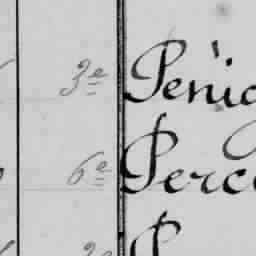 3e Pénig
6e Perc